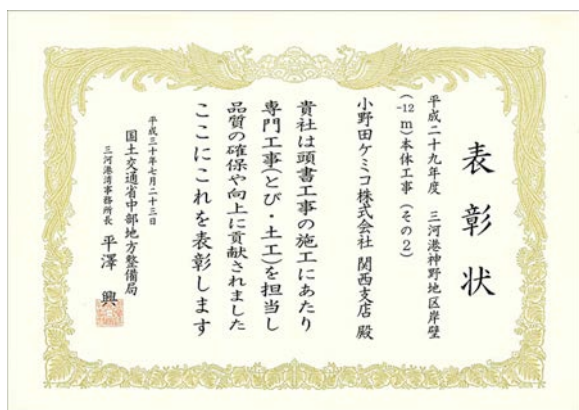 表彰状
平成二十九年度 三河港神野地区岸壁
(-12m)本体工事 (その2)
小野田ケミコ株式会社 関西支店 殿
貴社は頭書工事の施工にあたり
専門工事(とび・土工)を担当し
品質の確保や向上に貢献されました
ここにこれを表彰します
平成三十年七月二十三日
国土交通省中部地方整備局
三河港湾事務所長 平澤 興